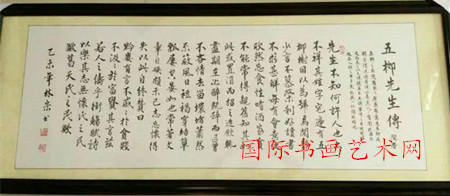 五柳先生傳
先生不知何許人也亦
不詳其姓字宅邊有五
柳樹因以為號焉閑靜
少言不慕榮利好讀書
不求甚解每有會意便
欣然忘食性嗜酒家貧
不能常得親舊知其如
此或置酒而招之造飲輒
盡期在必醉既醉而退曾
不吝情去留環堵蕭然
不蔽風日短褐穿結簞
瓢屢空晏如也常著文
章自娛頗示己志忘懷得
失以此自終贊曰
黔婁有言不戚戚於貧賤
不汲汲於富貴其言茲
若人之儔乎銜觴賦詩
以樂其志無懷氏之民
歟葛天氏之民歟
乙未
国际书画艺术网